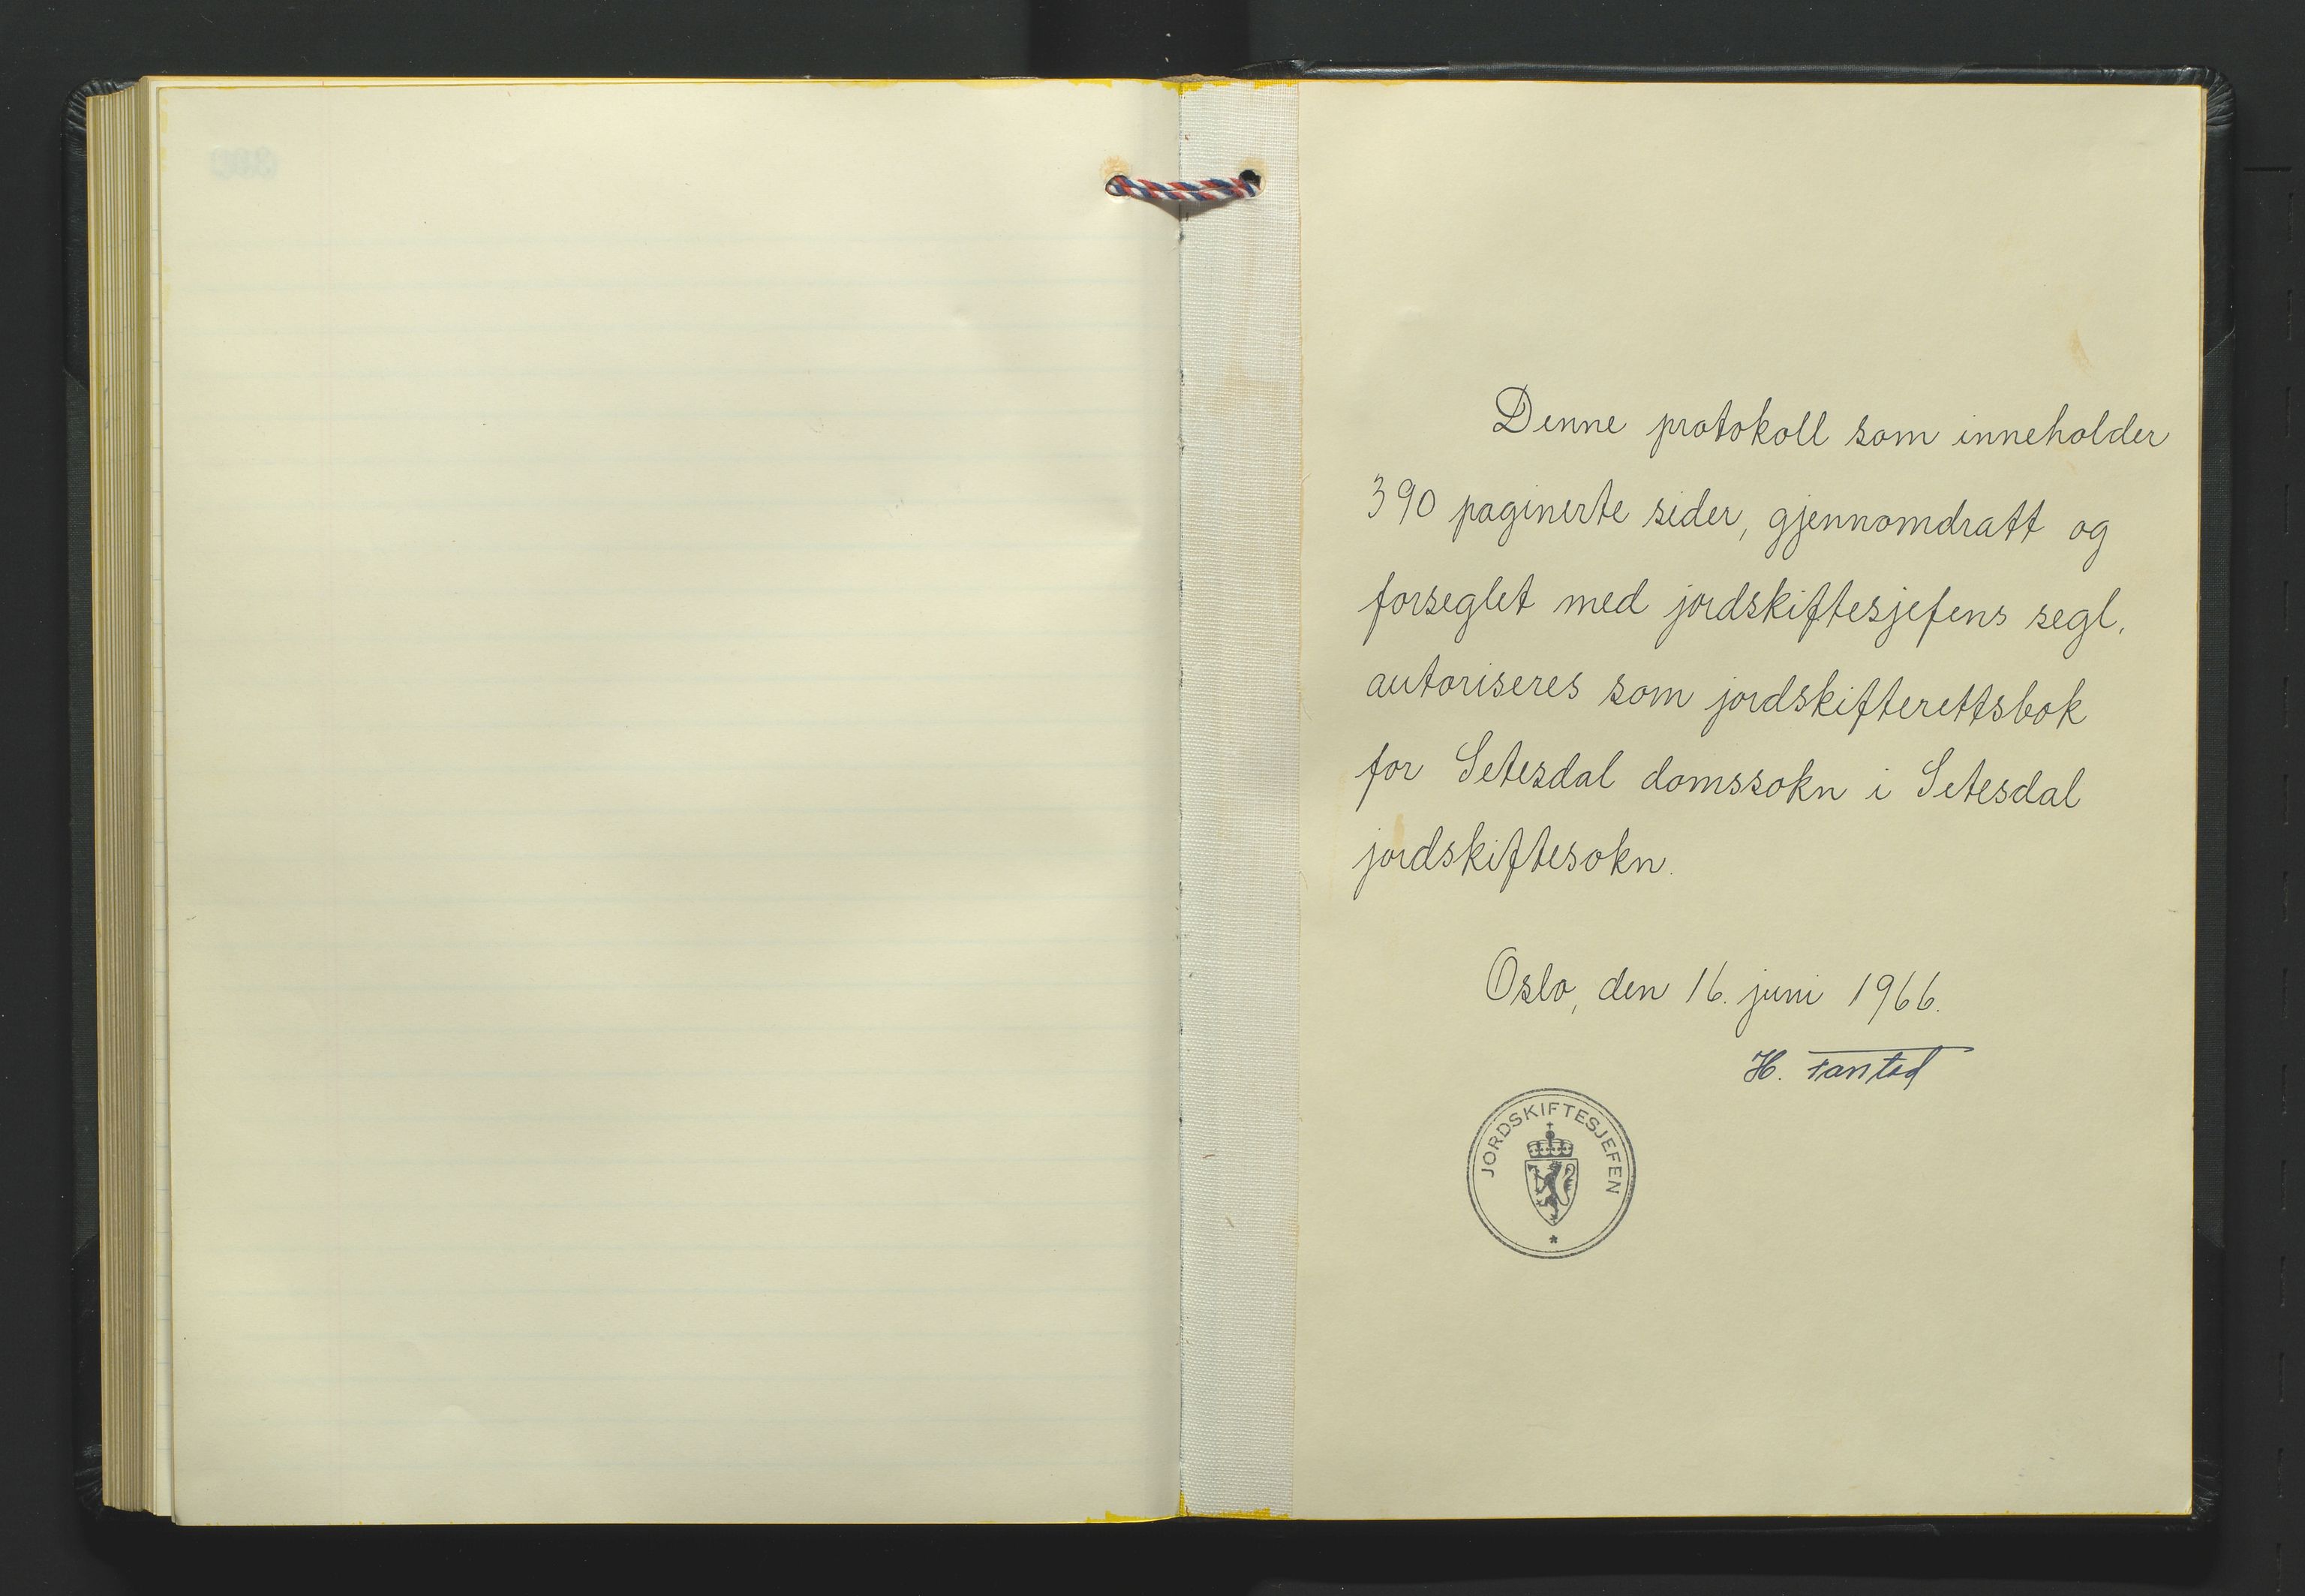 Denne protokoll som inneholder
390 paginerte sider, gjennomdratt og
forseglet med jordskiftesjefens segl,
autoriseres som jordskifterettsbok
for Setesdal domssokn i Setesdal
jordskiftesokn.
Oslo, den 16. juni 1966.
H.
JORDSKIFTESJEFEN